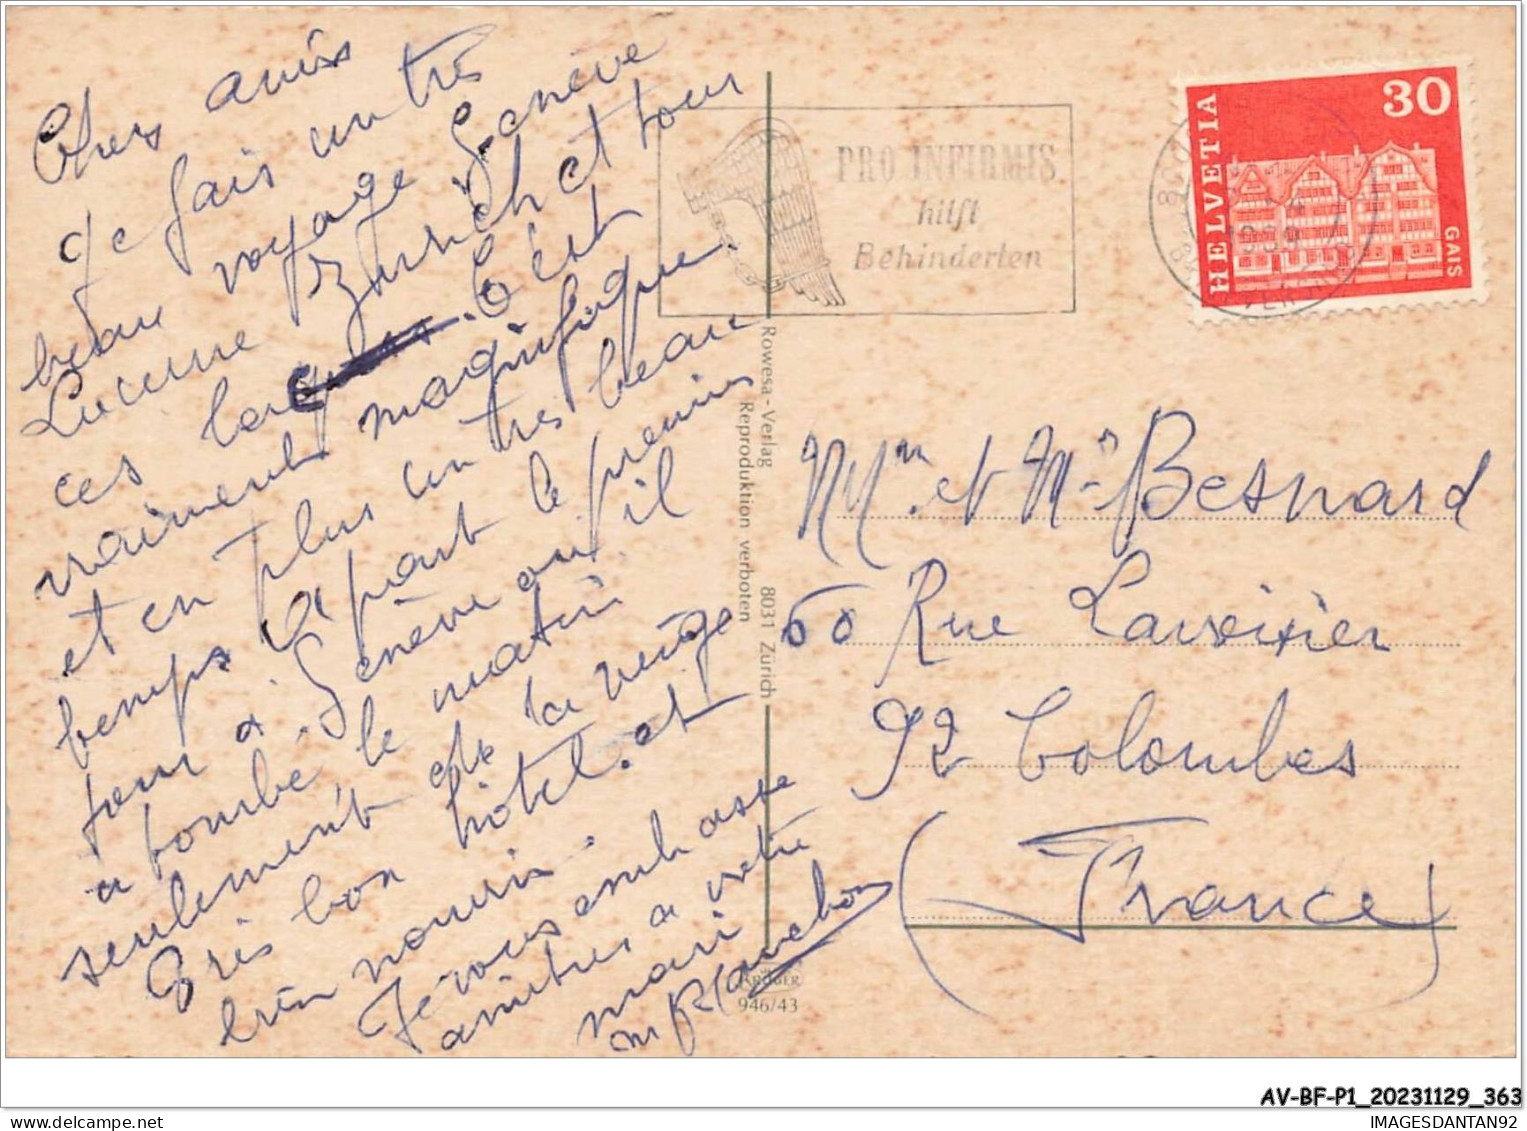 Chers amis
Je fais un très
beau voyage Genève
Lucerne Zurich et tour
ces C'est
vraiment magnifique.
et en plus un très beau
temps à part le premier
jour à Genève ou il
a tombé le matin
seulement de la neige
Très bon hôtel. et
bien nourri.
Je vous embrasse
amitiés a votre
mari
PRO INFIRMIS
hilft
Behinderten
HELVETIA
30
GAIS
Rowesa - Verlag 8031 Zürich
Reproduktion verboten
KRÜGER
946/43
Mm et Mr Besnard
60 Rue Lavoisier
92 Colombes
(France)
AV-BF-P1_20231129_363
IMAGESDANTAN92